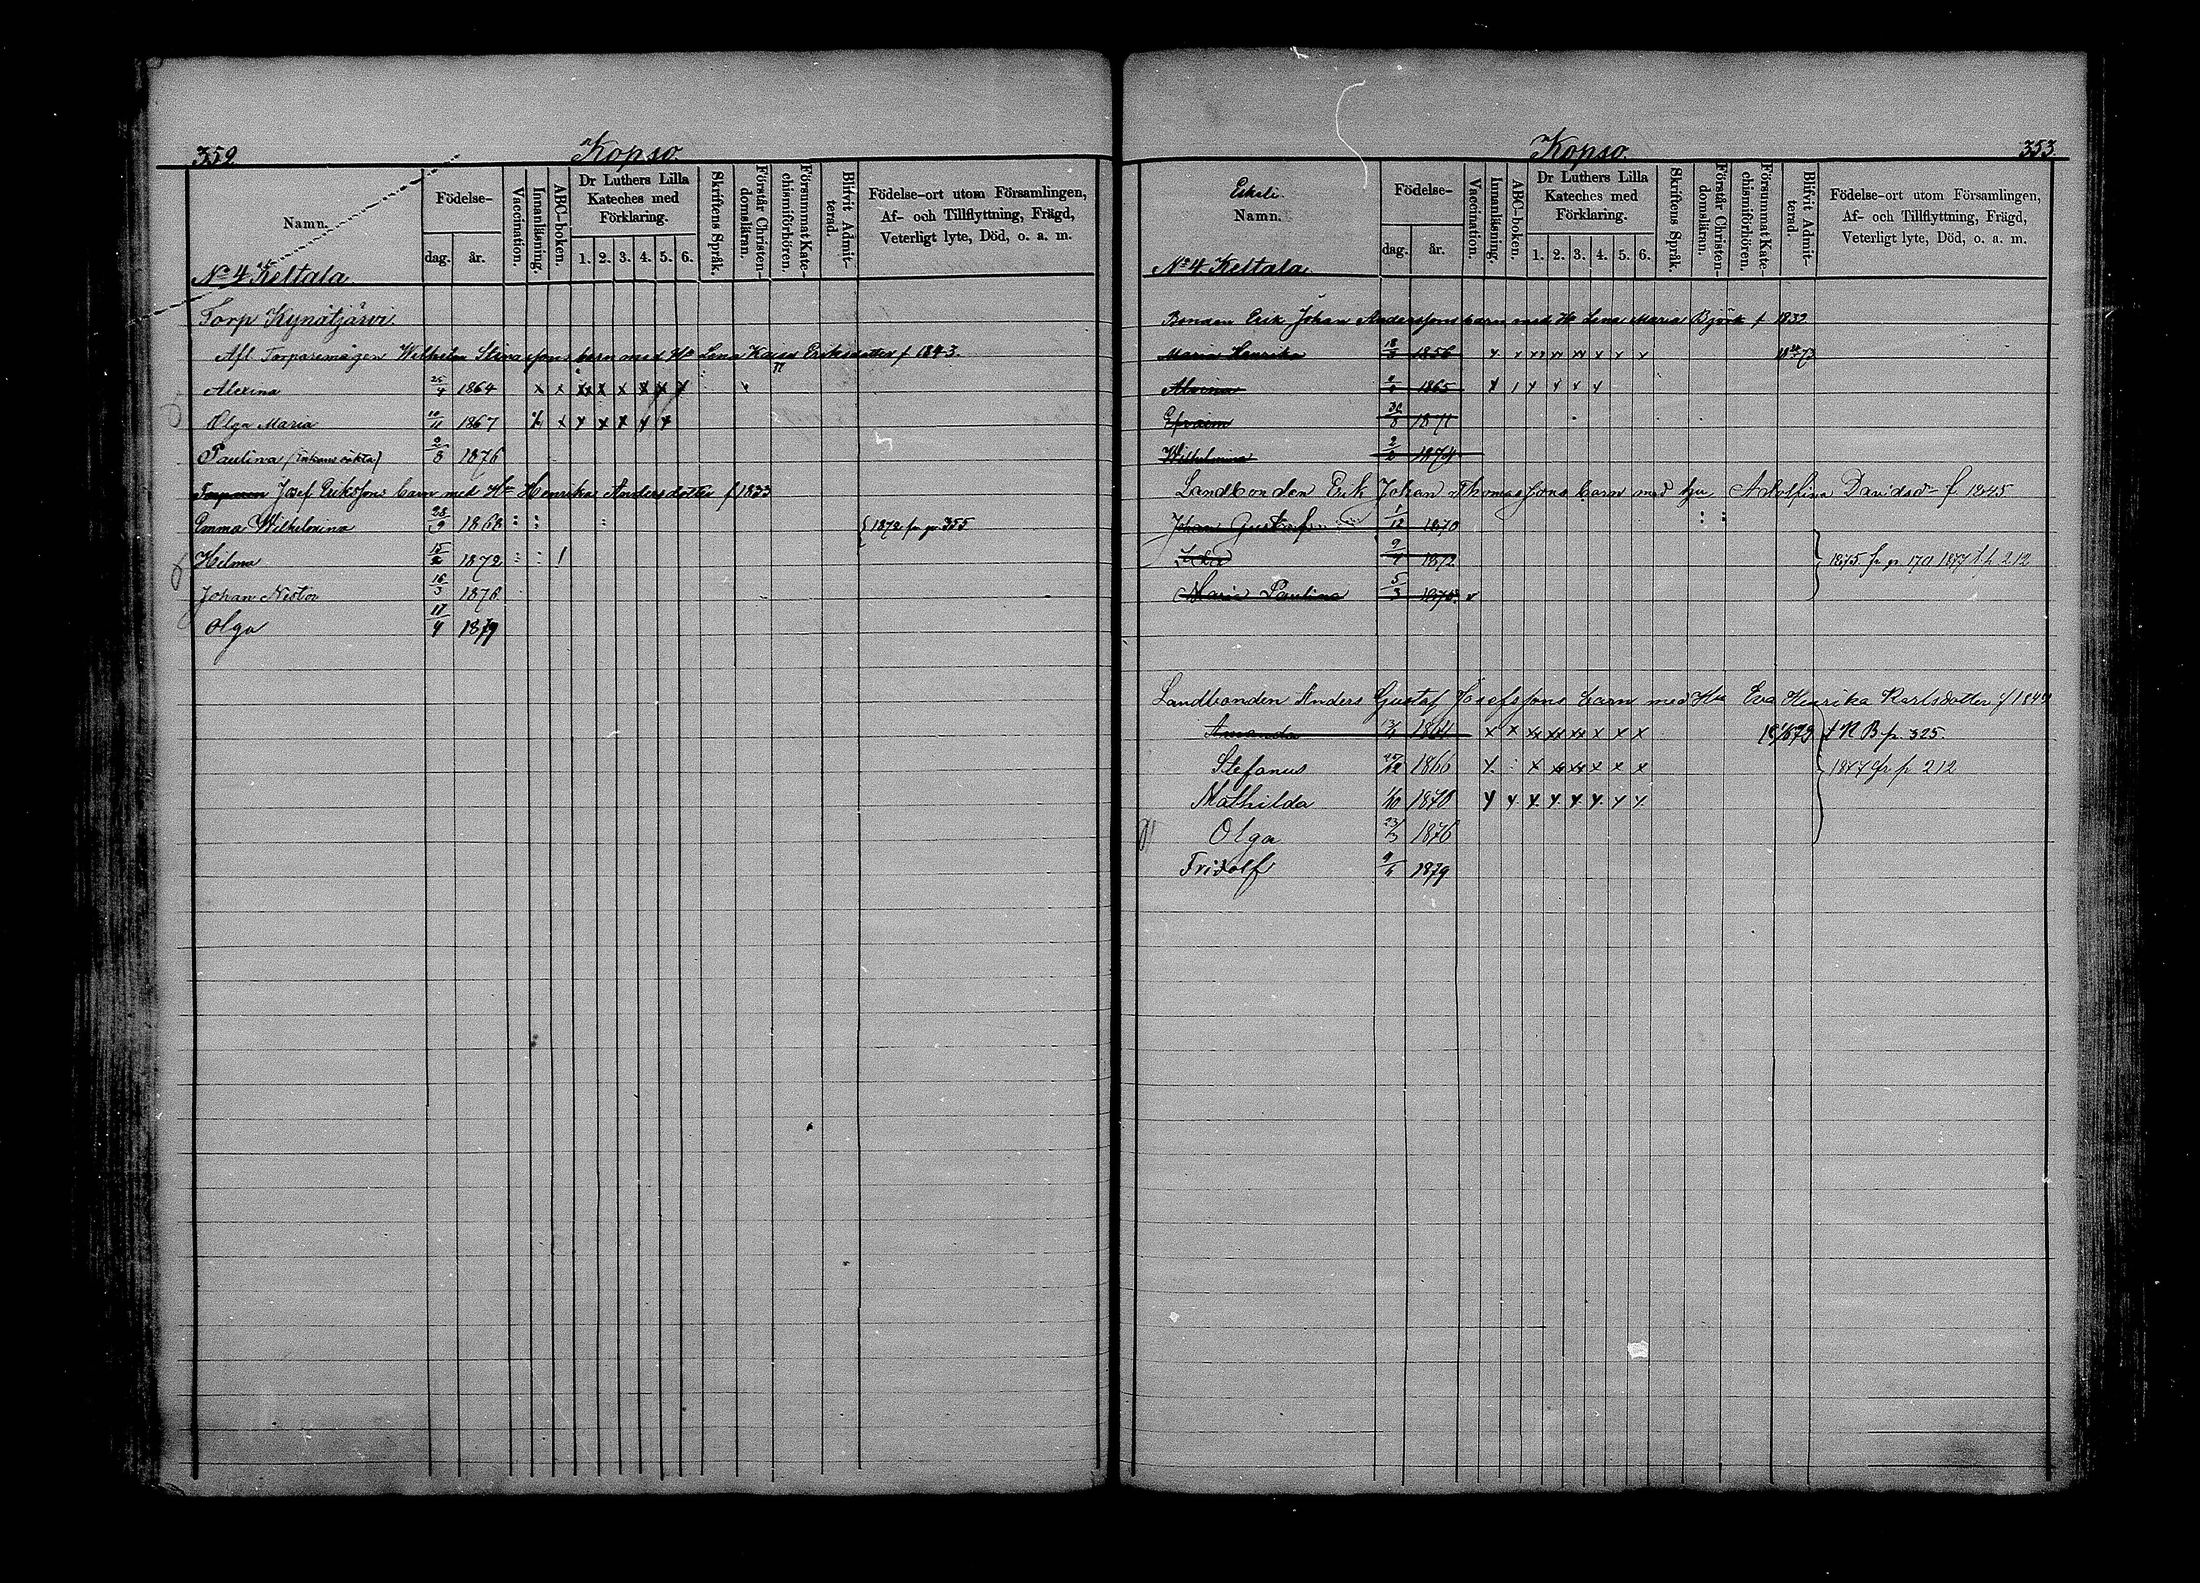 352
Kopso.
Namn.
Födelse-
dag.
år.
Vaccination.
Innanläsning.
ABC-boken.
Dr Luthers Lilla
Kateches med
Förklaring.
1. 2. 3. 4. 5. 6.
Skriftens Språk.
Förstår Christen-
domsläran.
Försummat Kate-
chismiförhören.
Blifvit Admit-
terad.
Födelse-ort utom Församlingen,
Af- och Tillflyttning, Frägd,
Veterligt lyte, Död, o. a. m.
No 4 Keltala.
Torp Kynätjärvi.
Afl Torparemågen Wilhelm barn med Hu Lena Kaisa Eriksdotter f 1843.
Alexina 25/4 1864 x x x x x x x x x
Olga Maria 10/11 1867 x x x x x x x
Paulina 9/8 1876
Torparen Josef Erikssons barn med Hu Henrika Andersdotter f 1833
Emma Wilhelmina 28/9 1868 { 1872 fr p. 355
Hilma 15/2 1872
Johan Nestor 16/3 1876
Olga 17/4 1879
Kopso.
353.
Eskeli.
Namn.
Födelse-
dag.
år.
Vaccination.
Innanläsning.
ABC-boken.
Dr Luthers Lilla
Kateches med
Förklaring.
1. 2. 3. 4. 5. 6.
Skriftens Språk.
Förstår Christen-
domsläran.
Försummat Kate-
chismiförhören.
Blifvit Admit-
terad.
Födelse-ort utom Församlingen,
Af- och Tillflyttning, Frägd,
Veterligt lyte, Död, o. a. m.
No 4 Keltala
Bonden Erik Johan Anderssons barn med Hu Lena Maria Björk f 1832
Maria Henrika 1856
1865
Efraim 30/8 1871
Wilhelmina 2/2 1874
Landbonden Erik Johan Thomassons barn med hu Adolfina Davidsdr f. 1845
Johan Gustaf 1/12 1870
1872
Maria Paulina 5/3 1875
1875 fr p 170 1877 t. h 212
Landbonden Anders Gustaf Josefssons barn med Hu Eva Henrika Karlsdotter f 1844
Amanda 1864 x x x x x x x x N B p. 325.
Stefanus 1866 x x x x x x x 1877 fr p 212
Mathilda 1/10 1870 x x x x x x x x
Olga 23/3 1876
Fridolf 1879